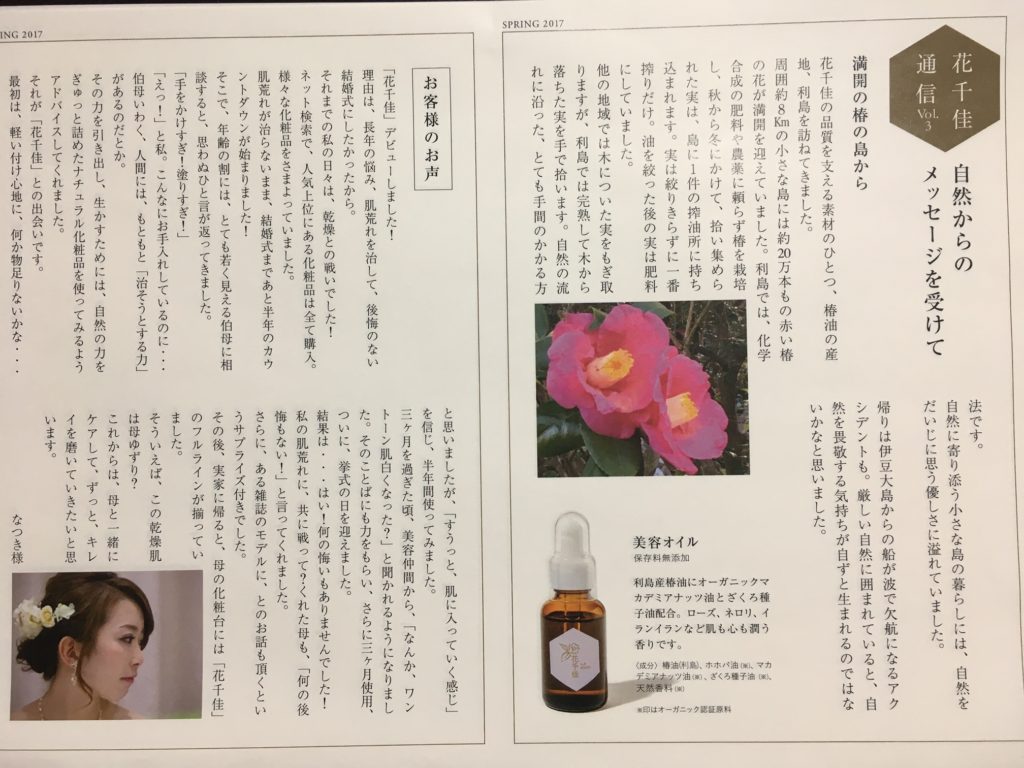 SPRING 2017
花千佳
通信 Vol.3
自然からの
メッセージを受けて
満開の椿の島から
花千佳の品質を支える素材のひとつ、椿油の産
地、利島を訪ねてきました。
周囲約8Kmの小さな島には約20万本もの赤い椿
の花が満開を迎えていました。利島では、化学
合成の肥料や農薬に頼らず椿を栽培
し、秋から冬にかけて、拾い集めら
れた実は、島に1件の搾油所に持ち
込まれます。実は絞りきらずに一番
搾りだけ。油を絞った後の実は肥料
にしていました。
他の地域では木についた実をもぎ取
りますが、利島では完熟して木から
落ちた実を手で拾います。自然の流
れに沿った、とても手間のかかる方
法です。
自然に寄り添う小さな島の暮らしには、自然を
だいじに思う優しさに溢れていました。
帰りは伊豆大島からの船が波で欠航になるアク
シデントも。厳しい自然に囲まれていると、自
然を畏敬する気持ちが自ずと生まれるのではな
いかなと思いました。
美容オイル
保存料無添加
利島産椿油にオーガニックマ
カデミアナッツ油とざくろ種
子油配合。ローズ、ネロリ、イ
ランイランなど肌も心も潤う
香りです。
〈成分〉椿油(利島)、ホホバ油㈱、マカ
デミアナッツ油㈱、ざくろ種子油㈱、
天然香料㈱
※印はオーガニック認証原料
花千佳
ING 2017
お客様のお声
「花千佳」デビューしました！
理由は、長年の悩み、肌荒れを治して、後悔のない
結婚式にしたかったから。
それまでの私の日々は、乾燥との戦いでした！
ネット検索で、人気上位にある化粧品は全て購入。
様々な化粧品をさまよっていました。
肌荒れが治らないまま、結婚式まであと半年のカウ
ントダウンが始まりました！
そこで、年齢の割には、とても若く見える伯母に相
談すると、思わぬひと言が返ってきました。
「手をかけすぎ！塗りすぎ！」
「えっ！」と私。こんなにお手入れしているのに・・・
伯母いわく、人間には、もともと「治そうとする力」
があるのだとか。
その力を引き出し、生かすためには、自然の力を
ぎゅっと詰めたナチュラル化粧品を使ってみるよう
アドバイスしてくれました。
それが「花千佳」との出会いです。
最初は、軽い付け心地に、何か物足りないかな・・・
と思いましたが、「すうっと、肌に入っていく感じ」
を信じ、半年間使ってみました。
三ヶ月を過ぎた頃、美容仲間から、「なんか、ワン
トーン肌白くなった？」と聞かれるようになりまし
た。そのことばにも力をもらい、さらに三ヶ月使用、
ついに、挙式の日を迎えました。
結果は・・・はい！何の悔いもありませんでした！
私の肌荒れに、共に戦って？くれた母も、「何の後
悔もない！」と言ってくれました。
さらに、ある雑誌のモデルに、とのお話も頂くとい
うサプライズ付きでした。
その後、実家に帰ると、母の化粧台には「花千佳」
のフルラインが揃ってい
ました。
そういえば、この乾燥肌
は母ゆずり？
これからは、母と一緒に
ケアして、ずっと、キレ
イを磨いていきたいと思
います。
なつき様